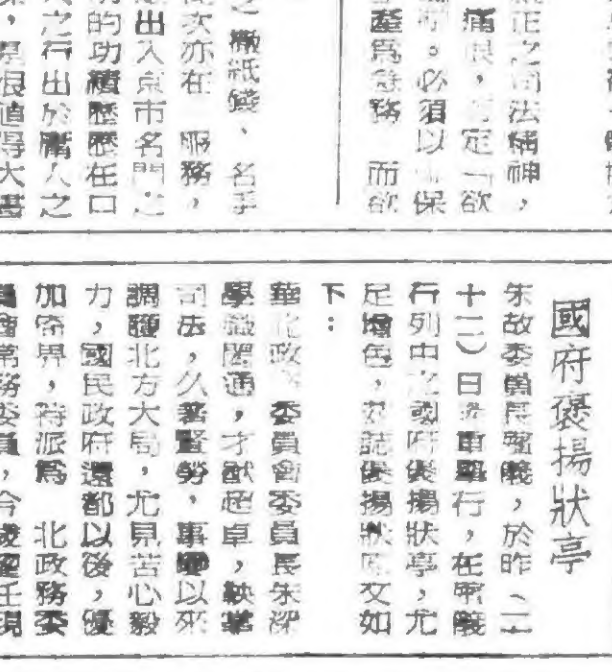 正之司法精神，
痛恨，定「欲
。必須以保
產爲急務 而欲
之 撒紙錢、名手
次亦在 服務，
出入京市名門之
的功績歷歷在口
之行出於衢人之
，是很值得大書
國府褒揚狀亭
朱故委員長殯儀，於昨（二
十二）日隆重舉行，在殯儀
行列中之國府褒揚狀亭，尤
足增色，茲誌褒揚狀原文如
下：
華北政 委員會委員長朱深
學識閎通，才猷超卓，執掌
司法，久著賢勞，事變以來
調護北方大局，尤見苦心毅
力，國民政府還都以後，優
加倚畀，特派爲 北政務委
員會常務委員，今歲擢任現